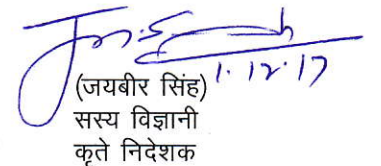 1.12.17
(जयबीर सिंह)
सस्य विज्ञानी
कृते निदेशक